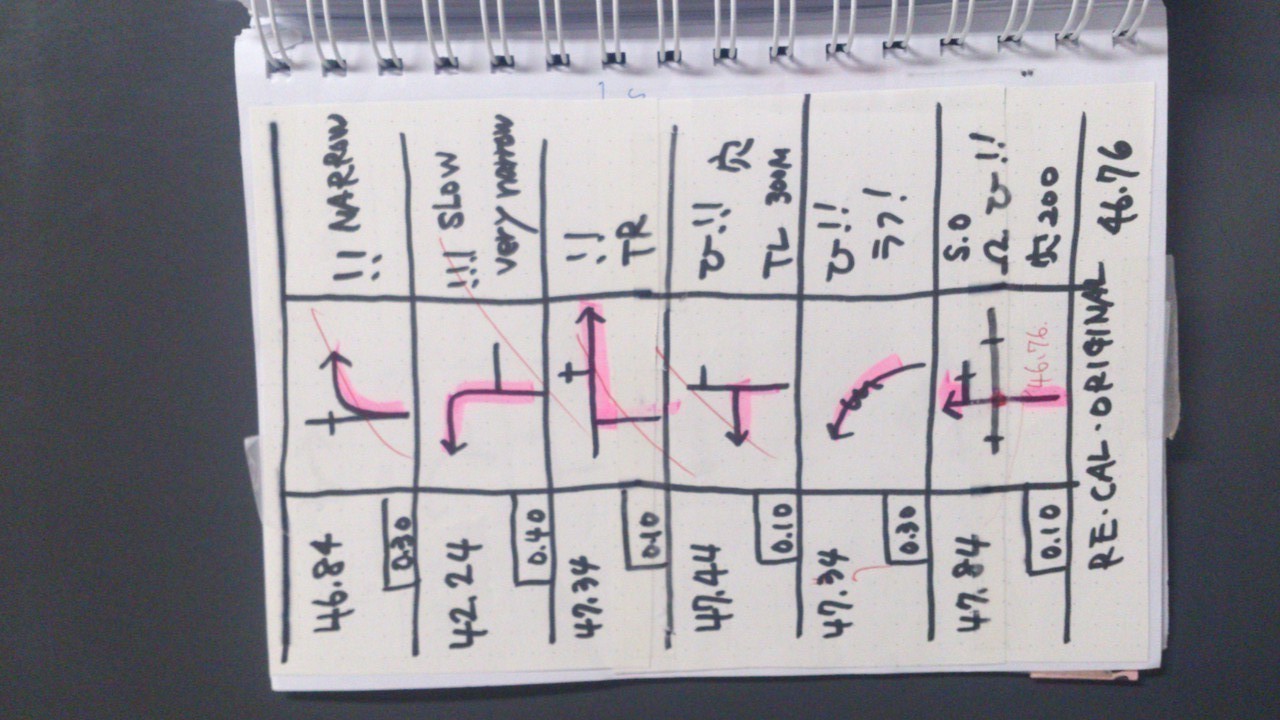 46.84
0.30
!! NARROW
42.24
0.40
!!! SLOW
very narrow
47.34
0.10
!!
TR
47.44
0.10
ひ!! 穴
TL 300M
47.34
0.30
ひ!!
ラフ!
47.84
0.10
46.76.
S.O
Ω ひ!!
穴200
RE.CAL.ORIGINAL 46.76